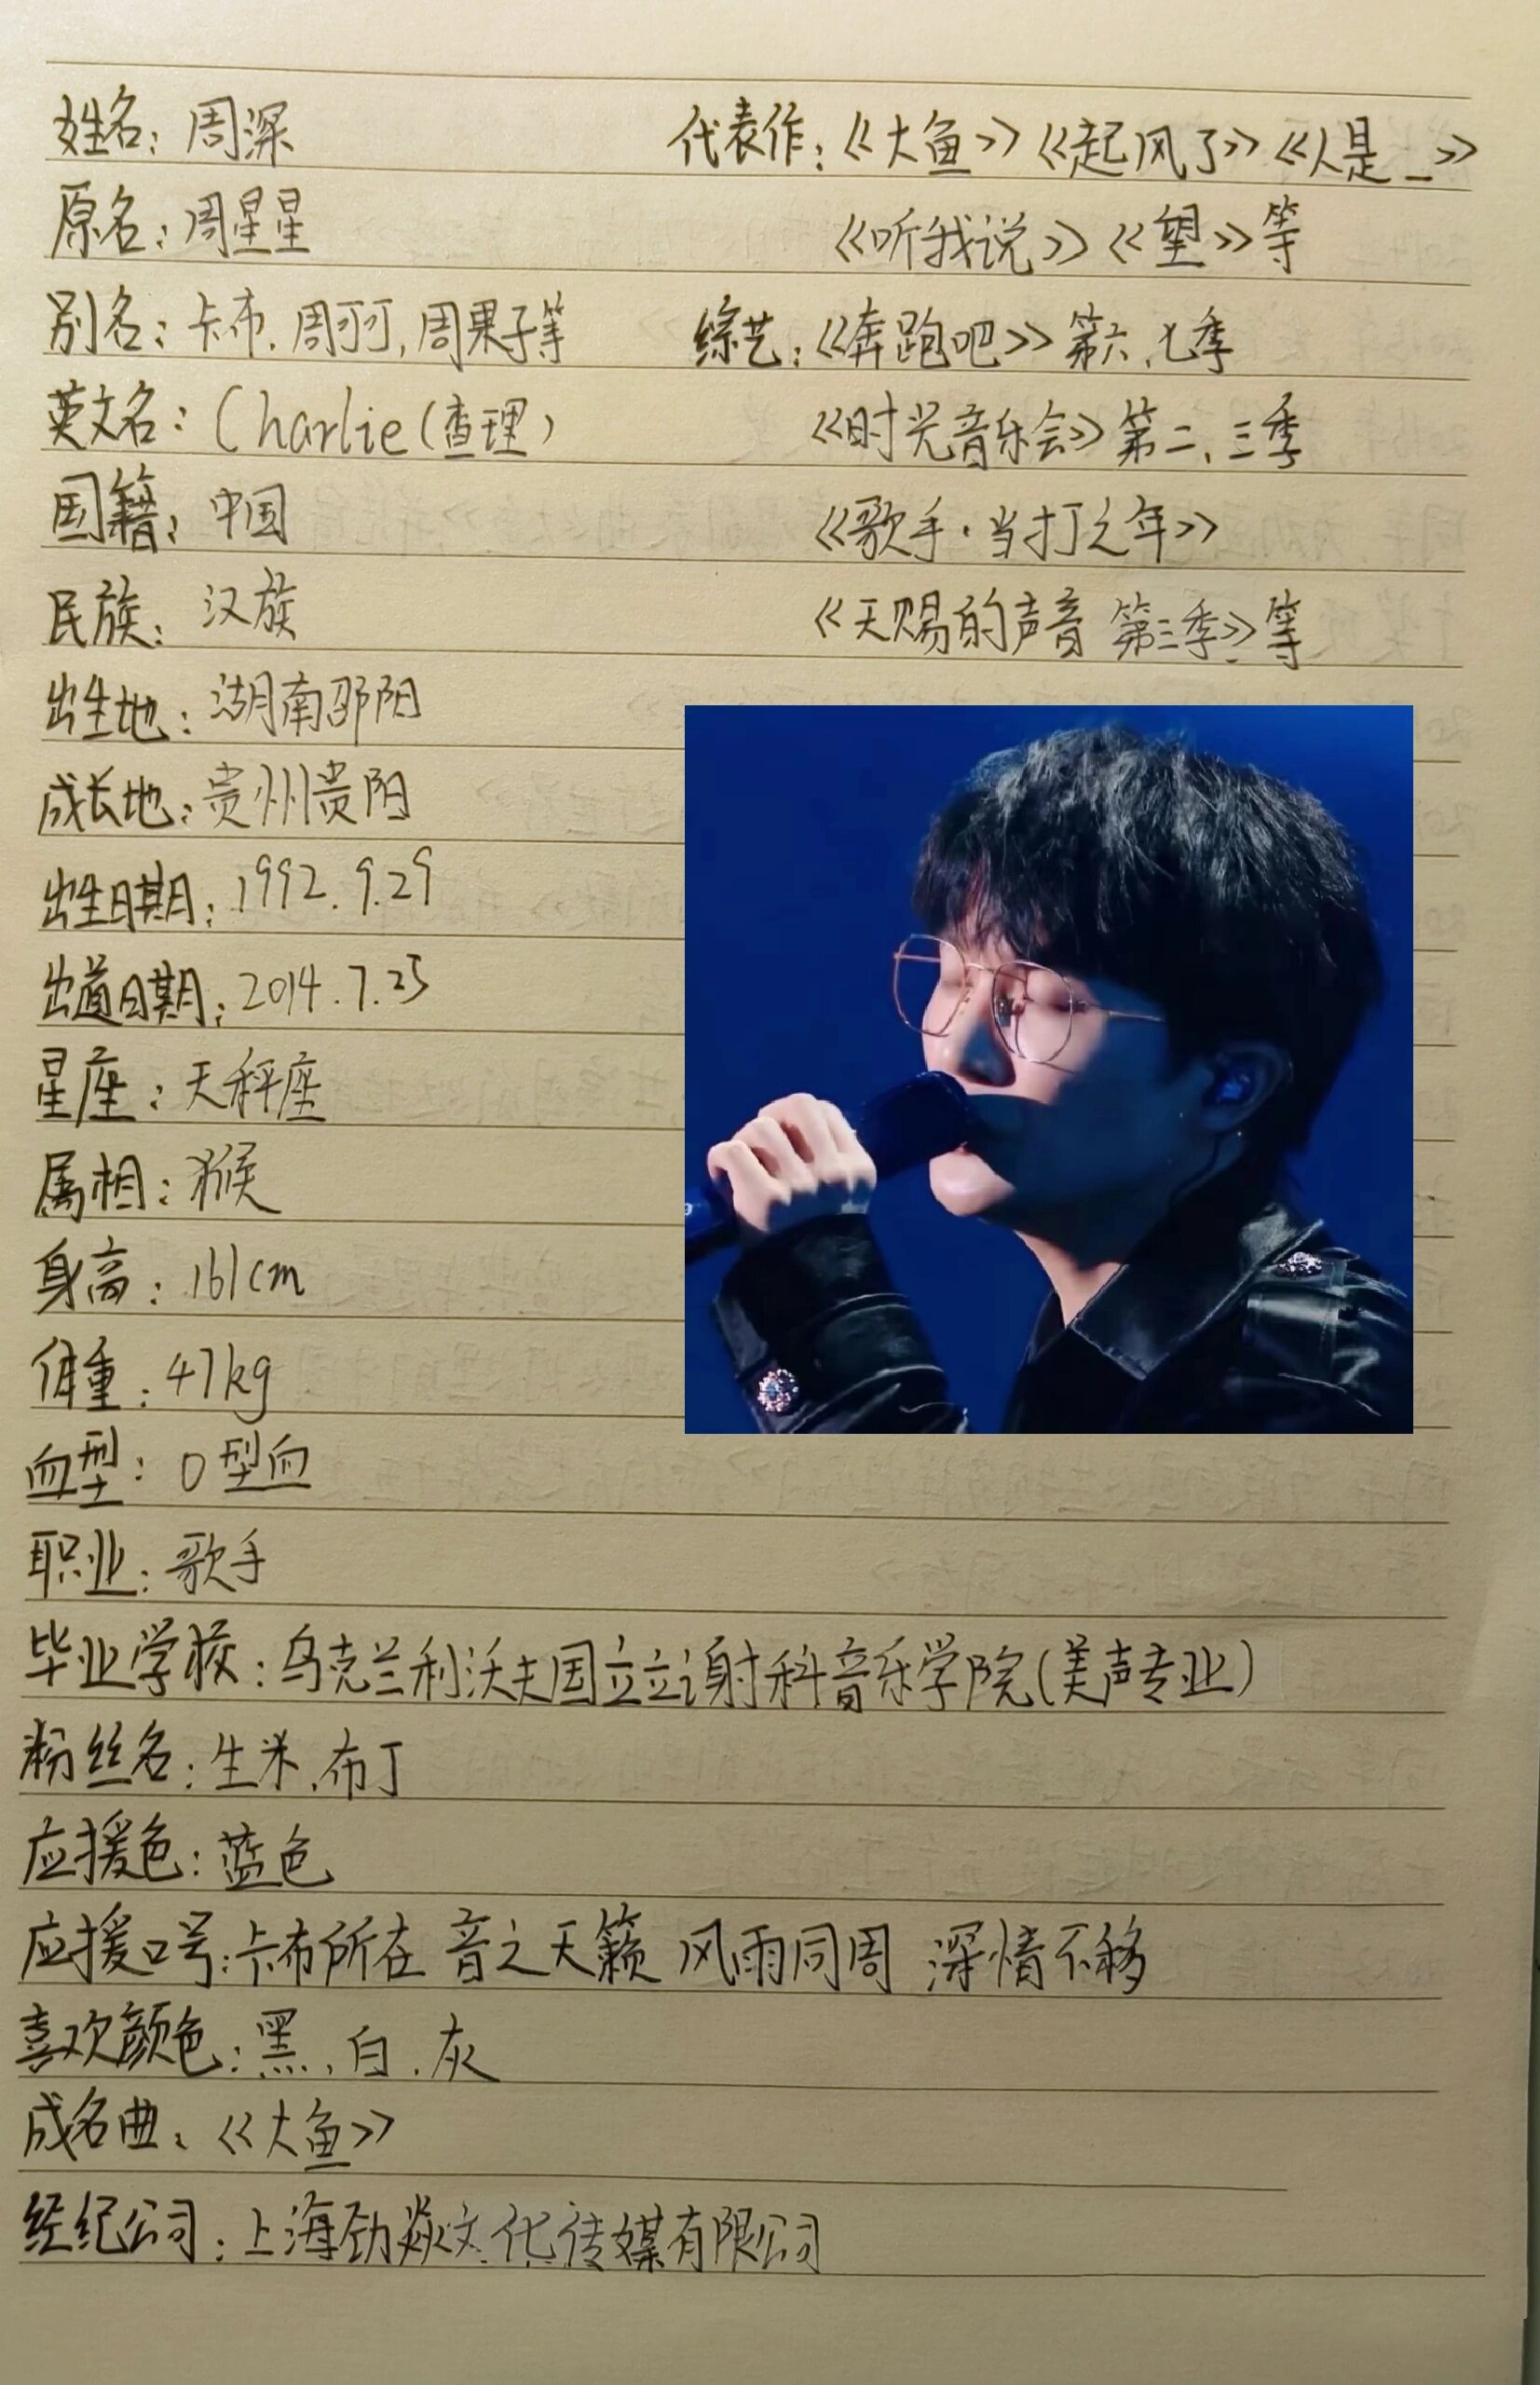 姓名：周深
原名：周星星
别名：卡布.周可可,周果子等
英文名：Charlie(查理)
国籍：中国
民族：汉族
出生地：湖南邵阳
成长地：贵州贵阳
出生日期：1992.9.29
出道日期：2014.7.25
星座：天秤座
属相：猴
身高：161cm
体重：47kg
血型：O型血
职业：歌手
毕业学校：乌克兰利沃夫国立立谢科音乐学院(美声专业)
粉丝名：生米.布丁
应援色：蓝色
应援口号：卡布所在 音之天籁 风雨同周 深情不移
喜欢颜色：黑、白.灰
成名曲：《大鱼》
经纪公司：上海劲焱文化传媒有限公司
代表作：《大鱼》《起风了》《人是_》
《听我说》《望》等
综艺：《奔跑吧》第六、七季
《时光音乐会》第二、三季
《歌手·当打之年》
《天赐的声音 第三季》等